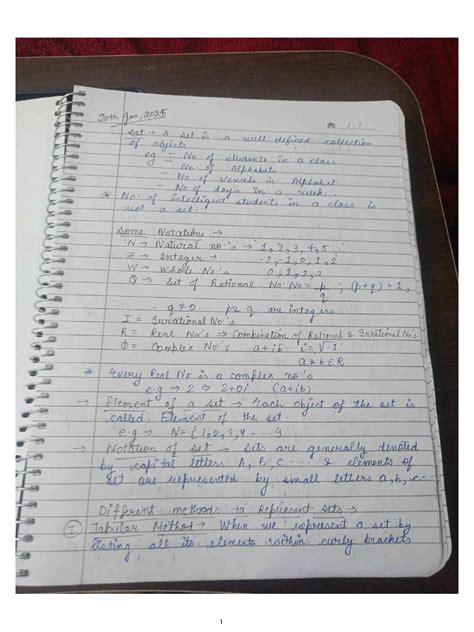 20th Jan, 2025
Set → A set is a well defined collection
of objects
eg :- No of students in a class
- No of Alphabets
- No of vowels in Alphabet
- No of days in a week..
* No. of intelligent students in a class is
not a set.
Some Notations →
N → Natural no's → 1, 2, 3, 4, 5
Z → Integer → -2, -1, 0, 1, 2
W → Whole No's 0, 1, 2, 3
Q → Set of Rational No: No = p/q ; (p+q) = 1,
q ≠ 0 p & q are integers
I = Irrational No's
R = Real No's ⇒ Combination of Rational & Irrational No's
Complex No's a+ib i = √-1
a & b ∈ R
* Every Real No is a complex no's
e.g → 2 → 2+0i (a+ib)
→ Element of a set → Each object of the set is
called Element of the set.
e.g → N = { 1, 2, 3, 4 --
→ Notation of set → sets are generally denoted
by capital letters A, B, C --- & elements of
set are represented by small letters a, b, c --
Different methods to Represent sets →
I Tabular Method → When we represent a set by
listing all its elements within curly brackets
1